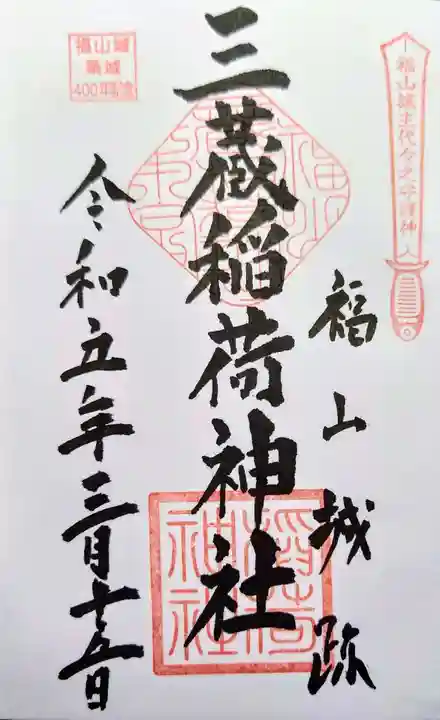 福山城主代々之守護神
福山城跡
三蔵稲荷神社
稲荷
神社
福山城
築城
400年記念
令和五年三月十五日